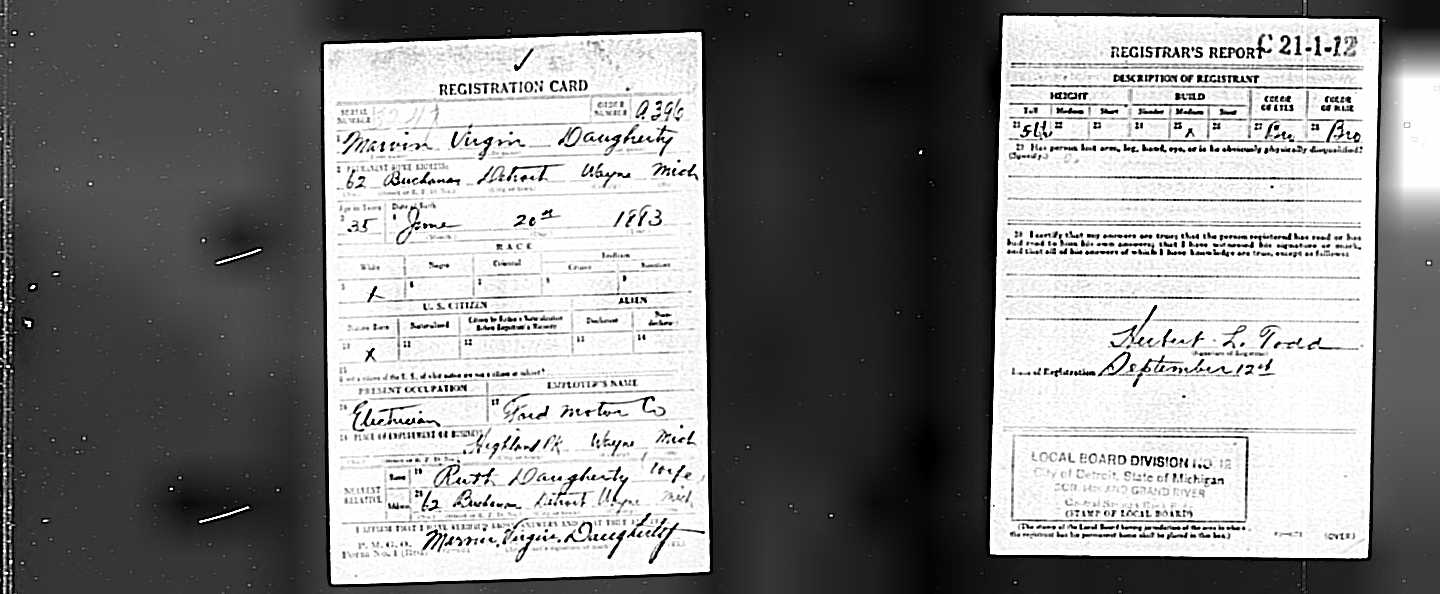 REGISTRATION CARD
SERIAL NUMBER
ORDER NUMBER A396
Marvin Virgin Daugherty
PERMANENT HOME ADDRESS:
62 Buchanan Detroit Wayne Mich
Age in Years Date of Birth
35 June 20th 1883
RACE
White Negro Oriental Indian
Citizen
X
U. S. CITIZEN ALIEN
Native Born Naturalized Citizen by Father's Naturalization Before Registrant's Majority Declarant Non-declarant
10 X 11 12 13 14
15
PRESENT OCCUPATION EMPLOYER'S NAME
16 Electrician 17 Ford Motor Co
18 PLACE OF EMPLOYMENT OR BUSINESS:
Highland Pk Wayne Mich
NEAREST RELATIVE
Name 19 Ruth Daugherty (wife)
Address 20 62 Buchanan Detroit Wayne Mich
I AFFIRM THAT I HAVE VERIFIED ABOVE ANSWERS AND THAT THEY ARE TRUE
P. M. G. O.
Form No. 1 (Red)
Marvin Virgin Daugherty
REGISTRAR'S REPORT C 21-1-12
DESCRIPTION OF REGISTRANT
HEIGHT BUILD COLOR OF EYES COLOR OF HAIR
Tall Medium Short Slender Medium Stout
21 22 23 24 25 X 26 27 Bro 28 Bro
29 Has person lost arm, leg, hand, eye, or is he obviously physically disqualified?
(Specify.)
30 I certify that my answers are true; that the person registered has read or has
had read to him his own answers; that I have witnessed his signature or mark,
and that all of his answers of which I have knowledge are true, except as follows:
Herbert L. Todd
(Signature of Registrar)
Date of Registration September 12th
LOCAL BOARD DIVISION NO. 12
City of Detroit, State of Michigan
COR. 14th AND GRAND RIVER
(STAMP OF LOCAL BOARD)
(The stamp of the Local Board having jurisdiction of the area in which
the registrant has his permanent home shall be placed in this box.)
(OVER)